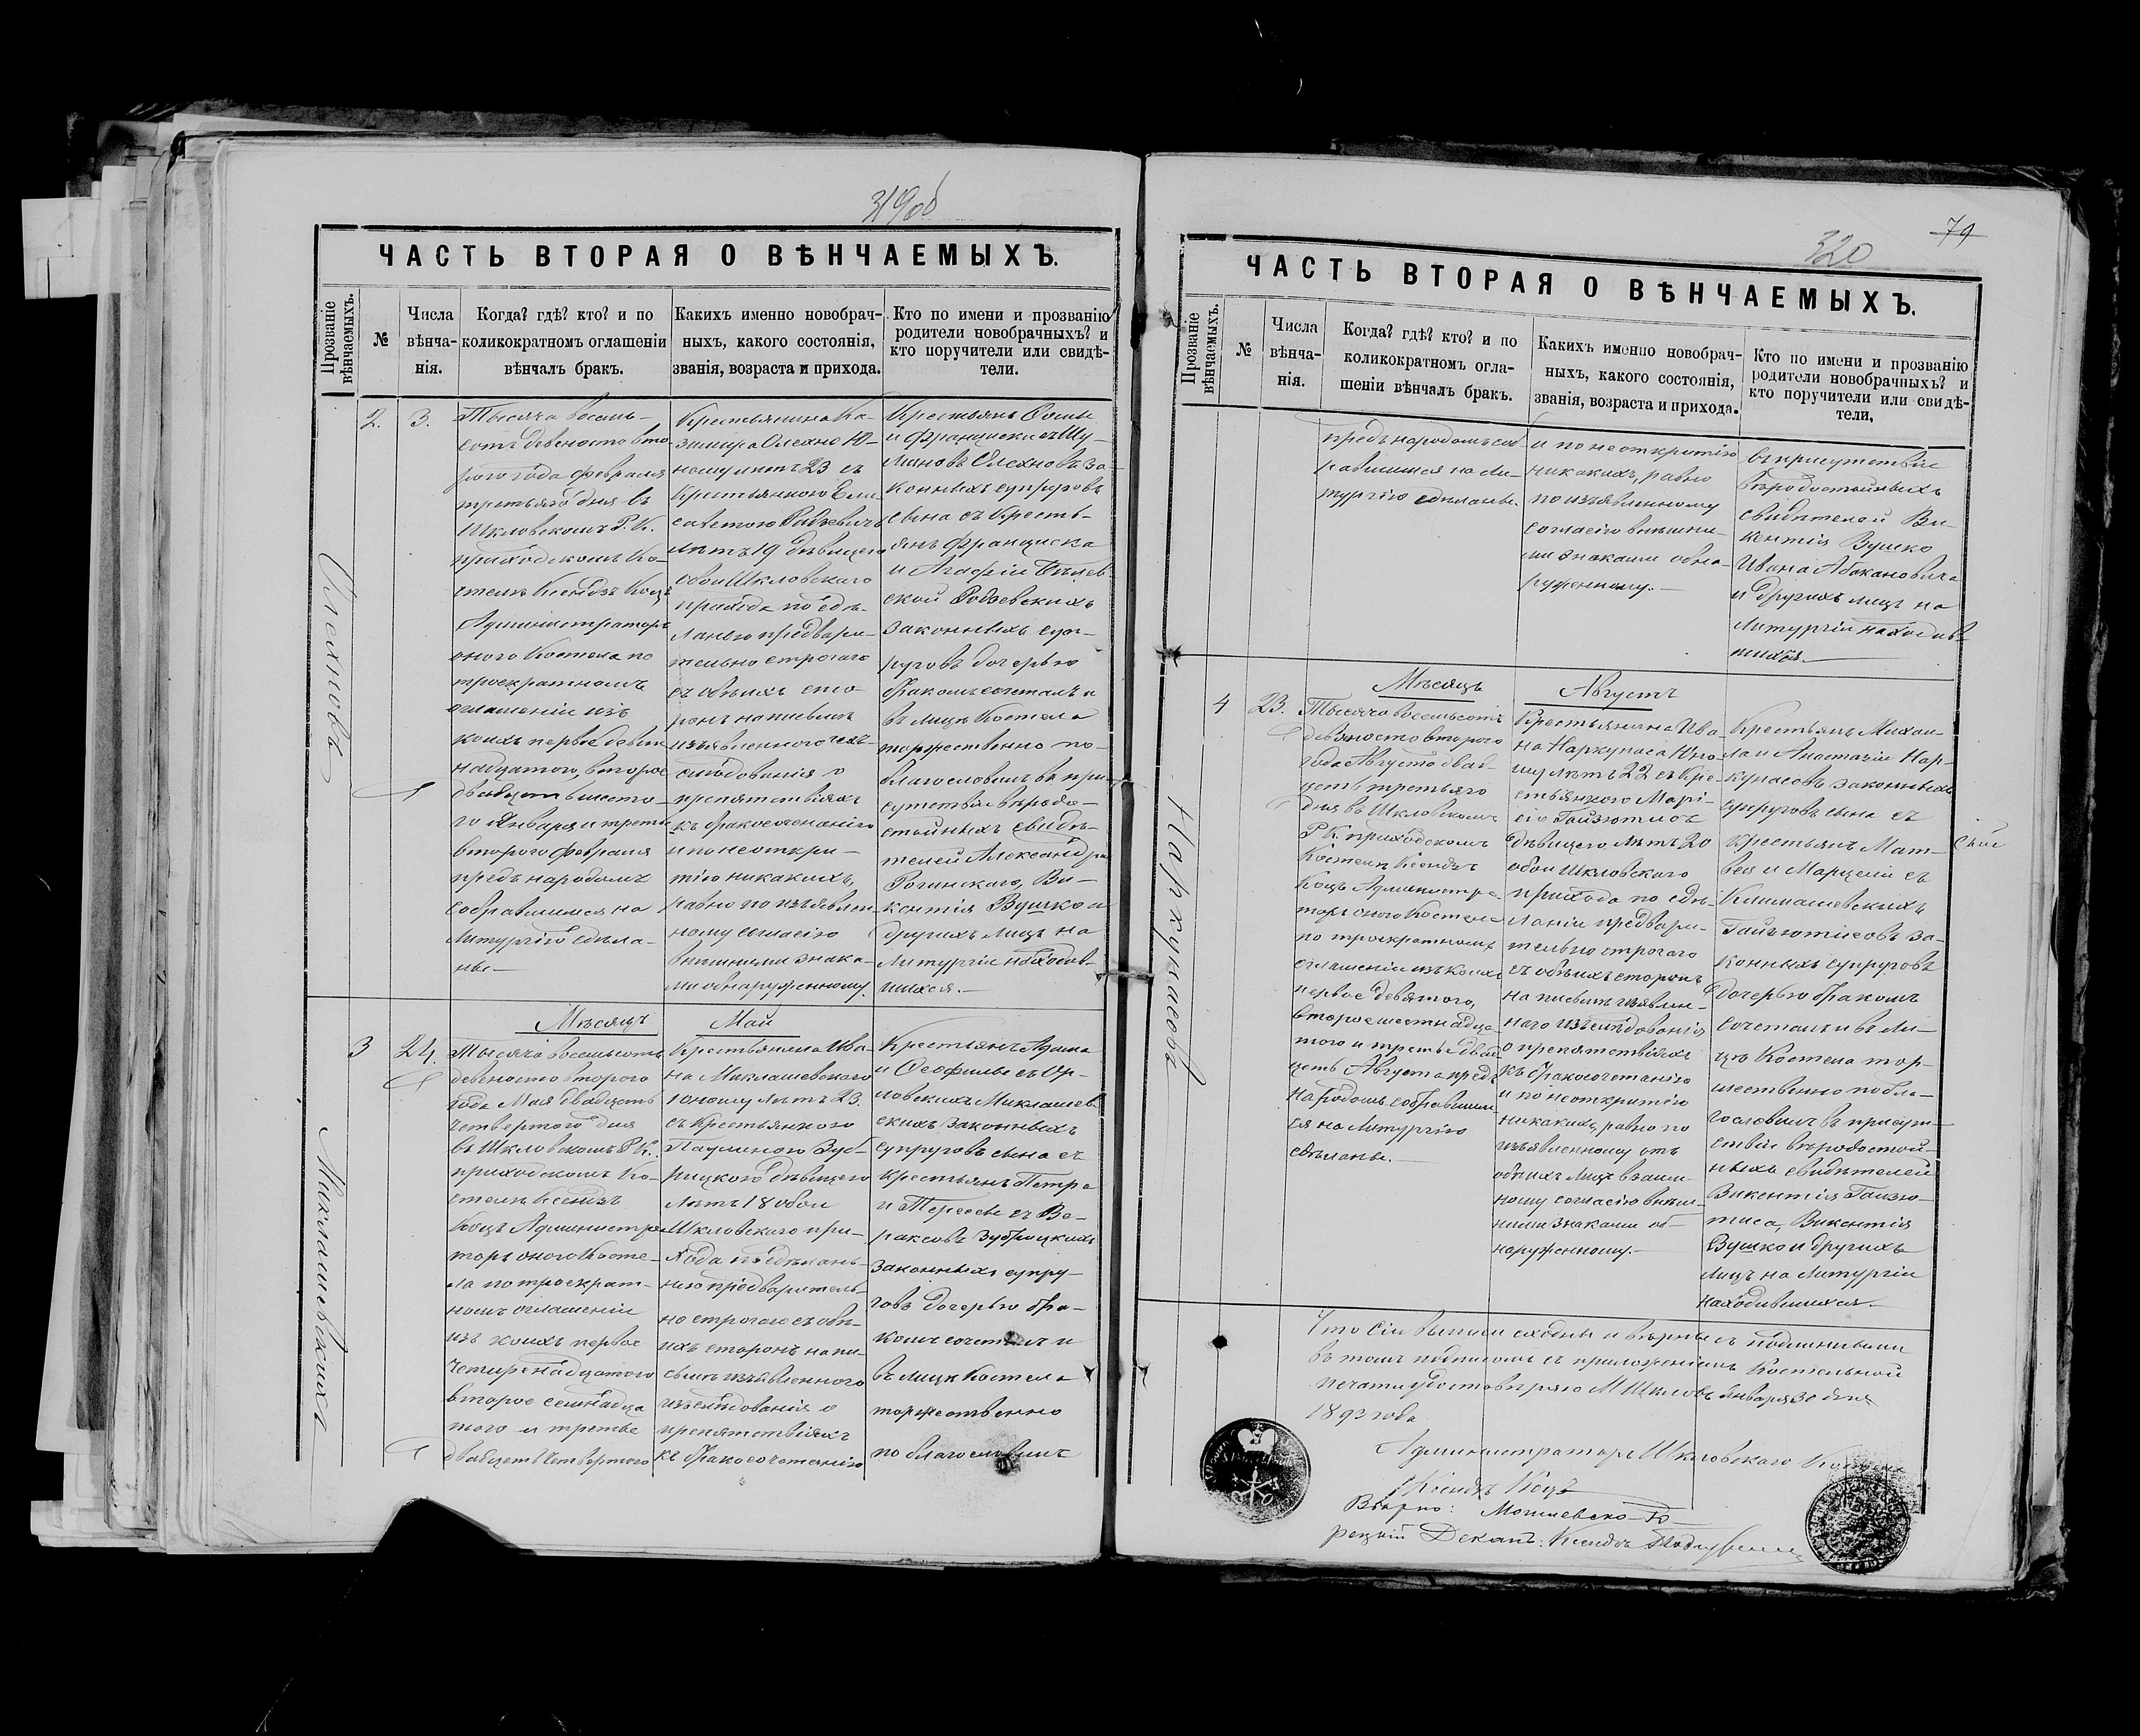 319об
ЧАСТЬ ВТОРАЯ О ВѢНЧАЕМЫХЪ.
Прозваніе вѣнчаемыхъ.
№
Числа вѣнча-нія.
Когда? гдѣ? кто? и по коликократномъ оглашеніи вѣнчалъ бракъ.
Какихъ именно новобрач-ныхъ, какого состоянія, званія, возраста и прихода.
Кто по имени и прозванію родители новобрачныхъ? и кто поручители или свидѣ-тели.
Олехновъ
2.
3.
Тысяча восемь-
сотъ девяносто вто
рого года февраля
третьяго дня въ
Шкловскомъ Р. К.
приходскомъ Ко-
стелѣ Ксендзъ Коцъ
Администраторъ
оного Костела по
троекратномъ
оглашеніи изъ
коихъ первое девят
надцатого, второе
двадцать шесто-
го Января и третье
второго февраля
предъ народомъ
собравшимся на
Литургію сдѣла-
нье.—
Крестьянина Ка-
зимира Олехно Ю-
ношу лѣтъ 23 съ
Крестьянкою Ели
саветою Радзевичъ
лѣтъ 19 дѣвицею
обои Шкловского
прихода по сдѣ-
ланью предвари-
тельно строгаго
съ обѣихъ сто-
ронъ на письмѣ
изъявленного изъ-
слѣдованія о
препятствіяхъ
къ бракосочетанію
и по неоткры-
тію никакихъ,
равно по изъявлен-
ному согласію
внѣшними знака-
ми обнаруженному.
Крестьянъ Фомы
и Францишки съ Шу-
линовъ Олехновъ за-
конныхъ супруговъ
сына съ Кресть-
янъ Франциска
и Агафіи Бѣлев-
ской Радзевскихъ
законныхъ суп-
руговъ дочерью
бракомъ сочеталъ и
въ лицѣ Костела
торжественно по-
благословилъ въ при-
сутствіе вѣродо-
стойныхъ свидѣ-
телей Александра
Рогинского, Ви-
кентія Вушко и
другихъ лицъ на
Литургіи находив-
шихся.—
Мѣсяцъ Май
Миклашевскихъ
3
24.
Тысяча восемьсотъ
девяносто второго
года Мая двадцать
четвертого дня
въ Шкловскомъ Р. К.
приходскомъ Ко-
стелѣ Ксендзъ
Коцъ Администра
торъ оного Косте-
ла по троекрат-
номъ оглашеніи
изъ коихъ первое
четырнадцатого
второе семнадца
того и третье
двадцать четвертого
Крестьянина Ива-
на Миклашевского
юношу лѣтъ 23.
съ Крестьянкою
Паулиною Зуб-
рицкою дѣвицею
лѣтъ 18 обои
Шкловскаго при-
хода по сдѣлань-
ю предваритель-
но строгаго съ обѣ-
ихъ сторонъ на пи-
сьмѣ изъявленного
изслѣдованія о
препятствіяхъ
къ бракосочетанію
Крестьянъ Адама
и Ѳеофилы съ Ор-
ловскихъ Миклашев
скихъ законныхъ
супруговъ сына съ
Крестьянъ Петра
и Тересы съ Ве-
раксовъ Зубрицкихъ
законныхъ супру-
говъ дочерью бра-
комъ сочеталъ и
въ лицѣ Костела
торжественно
поблагословилъ
79
320
ЧАСТЬ ВТОРАЯ О ВѢНЧАЕМЫХЪ.
Прозваніе вѣнчаемыхъ.
№
Числа вѣнча-нія.
Когда? гдѣ? кто? и по коликократномъ огла-шеніи вѣнчалъ бракъ.
Какихъ именно новобрач-ныхъ, какого состоянія, званія, возраста и прихода.
Кто по имени и прозванію родители новобрачныхъ? и кто поручители или свидѣ-тели.
предъ народомъ соб
равшимся на Ли-
тургію сдѣланье.
и по неоткрытію
никакихъ, равно
по изъявленному
согласію внѣшни-
ми знаками обна-
руженному.—
въ присутствіе
вѣродостойныхъ
свидѣтелей Ви-
кентія Вушко
Ивана Абакановича
и другихъ лицъ на
Литургіи находив-
шихся.—
Мѣсяцъ Августъ
Наркунасовъ
4
23.
Тысяча восемьсотъ
девяносто второго
года Августа двад-
цать третьяго
дня въ Шкловскомъ
Р. К. приходскомъ
Костелѣ Ксендзъ
Коцъ Администра
торъ оного Костела
по троекратномъ
оглашеніи изъ коихъ
первое девятого,
второе шестнадца-
того и третье двад
цать Августа предъ
народомъ собравшим
ся на Литургію
сдѣланье.—
Крестьянина Ива-
на Наркунаса Юно-
шу лѣтъ 22 съ Кре-
стьянкою Марі-
ею Гайзютисъ
дѣвицею лѣтъ 20
обои Шкловского
прихода по сдѣ-
ланіи предвари-
тельно строгаго
съ обѣихъ сторонъ
на письмѣ изъявлен-
наго изъслѣдованія
о препятствіяхъ
къ бракосочетанію
и по неоткрытію
никакихъ, равно по
изъявленному отъ
обѣихъ лицъ взаим-
ному согласію внѣш-
ними знаками об-
наруженному.—
Крестьянъ Михаи-
ла и Анастазіи Нар-
кунасовъ законныхъ
супруговъ сына съ
Крестьянъ Мат-
вея и Марцели съ
Климашевскихъ
Гайзютисовъ за-
конныхъ супруговъ
дочерью бракомъ
сочеталъ и въ ли-
цѣ Костела тор-
жественно побла-
гословилъ въ присут-
ствіи вѣродостой-
ныхъ свидѣтелей
Викентія Гайзю-
тиса, Викентія
Вушко и другихъ
лицъ на Литургіи
находившихся.—
Что сіи выписи сходны и вѣрны съ подлинными
въ томъ подписомъ съ приложеніемъ Костельной
печати удостовѣряю М. Шкловъ Января 30 дня
1893 года
Администраторъ Шкловскаго Костела
Ксендзъ Коцъ
Вѣрно: Могилевско-Го-
рецкій Деканъ: Ксендзъ